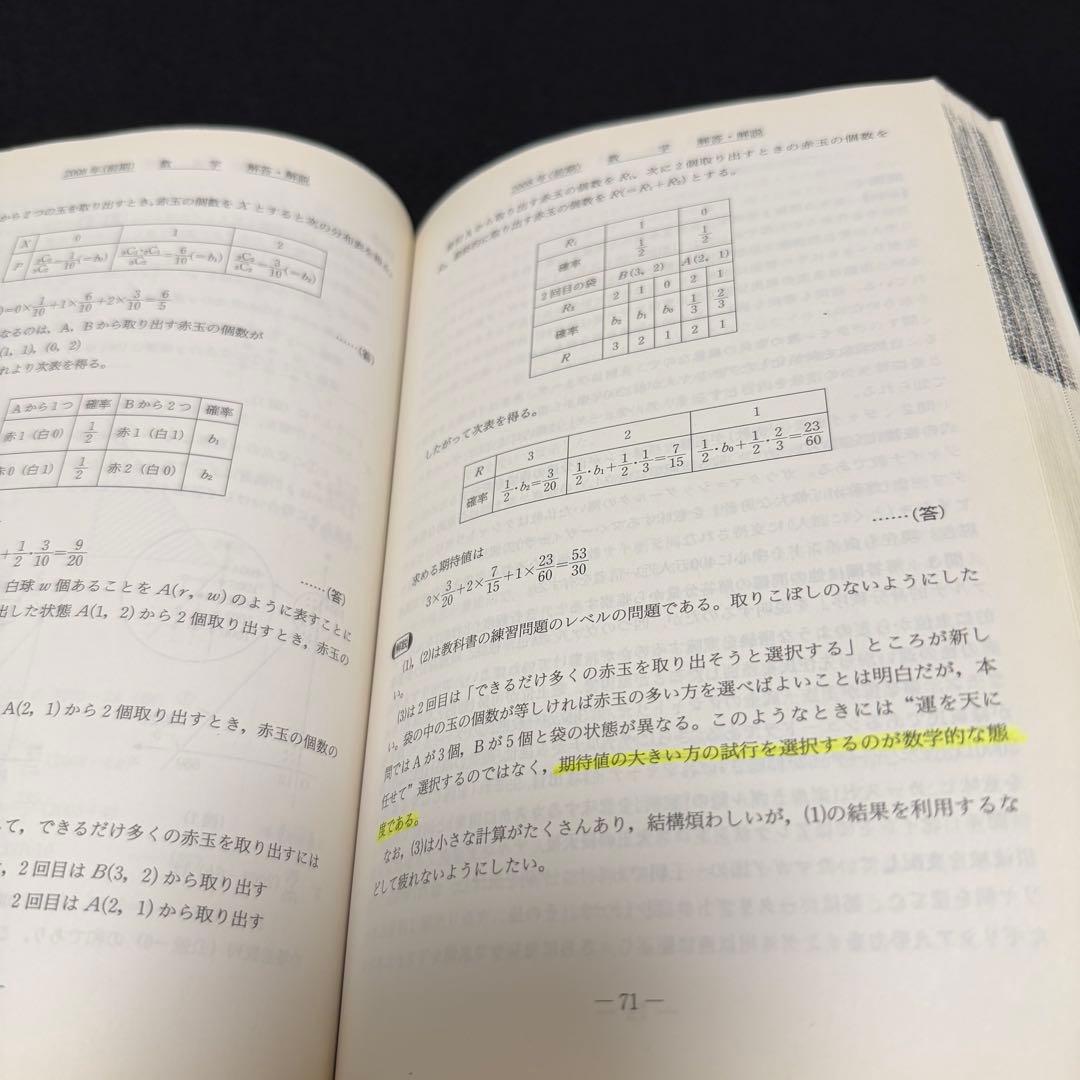 2008年(前期) 数 学 解答・解説
から2つの玉を取り出すとき,赤玉の個数をXとすると次の分布表を得る.
X 0 1 2
P ₂C₂/₅C₂=1/10(=b₀) ₃C₁·₂C₁/₅C₂=6/10(=b₁) ₃C₂/₅C₂=3/10(=b₂)
)=0×1/10+1×6/10+2×3/10=6/5
……(答)
なるのは, A, Bから取り出す赤玉の個数が
(1, 1), (0, 2)
れより次表を得る。
Aから1つ 確率 Bから2つ 確率
赤1(白0) 1/2 赤1(白1) b₁
赤0(白1) 1/2 赤2(白0) b₂
+1/2·3/10=9/20
……(答)
白球w個あることをA(r, w)のように表すことに
出した状態A(1, 2)から2個取り出すとき, 赤玉の
A(2, 1)から2個取り出すとき, 赤玉の個数の
て, できるだけ多くの赤玉を取り出すには
, 2回目はB(3, 2)から取り出す
2回目はA(2, 1)から取り出す
2008年(前期) 数 学 解答・解説
から取り出す赤玉の個数をR₁, 次に2個取り出すときの赤玉の個数を
に取り出す赤玉の個数をR(=R₁+R₂)とする。
R₁ 1 0
確率 1/2 1/2
2回目の袋 B(3, 2) A(2, 1)
R₂ 2 1 0 2 1
確率 b₂ b₁ b₀ 1/3 2/3
R 3 2 1 2 1
したがって次表を得る。
R 3 2 1
確率 1/2·b₂=3/20 1/2·b₁+1/2·1/3=7/15 1/2·b₀+1/2·2/3=23/60
求める期待値は
3×3/20+2×7/15+1×23/60=53/30
……(答)
解説
(1), (2)は教科書の練習問題のレベルの問題である。取りこぼしのないようにした
い。
(3)は2回目は「できるだけ多くの赤玉を取り出そうと選択する」ところが新し
い。袋の中の玉の個数が等しければ赤玉の多い方を選べばよいことは明白だが, 本
問ではAが3個, Bが5個と袋の状態が異なる。このようなときには“運を天に
任せて”選択するのではなく, 期待値の大きい方の試行を選択するのが数学的な態
度である。
なお, (3)は小さな計算がたくさんあり, 結構煩わしいが, (1)の結果を利用するな
どして疲れないようにしたい。
― 71 ―